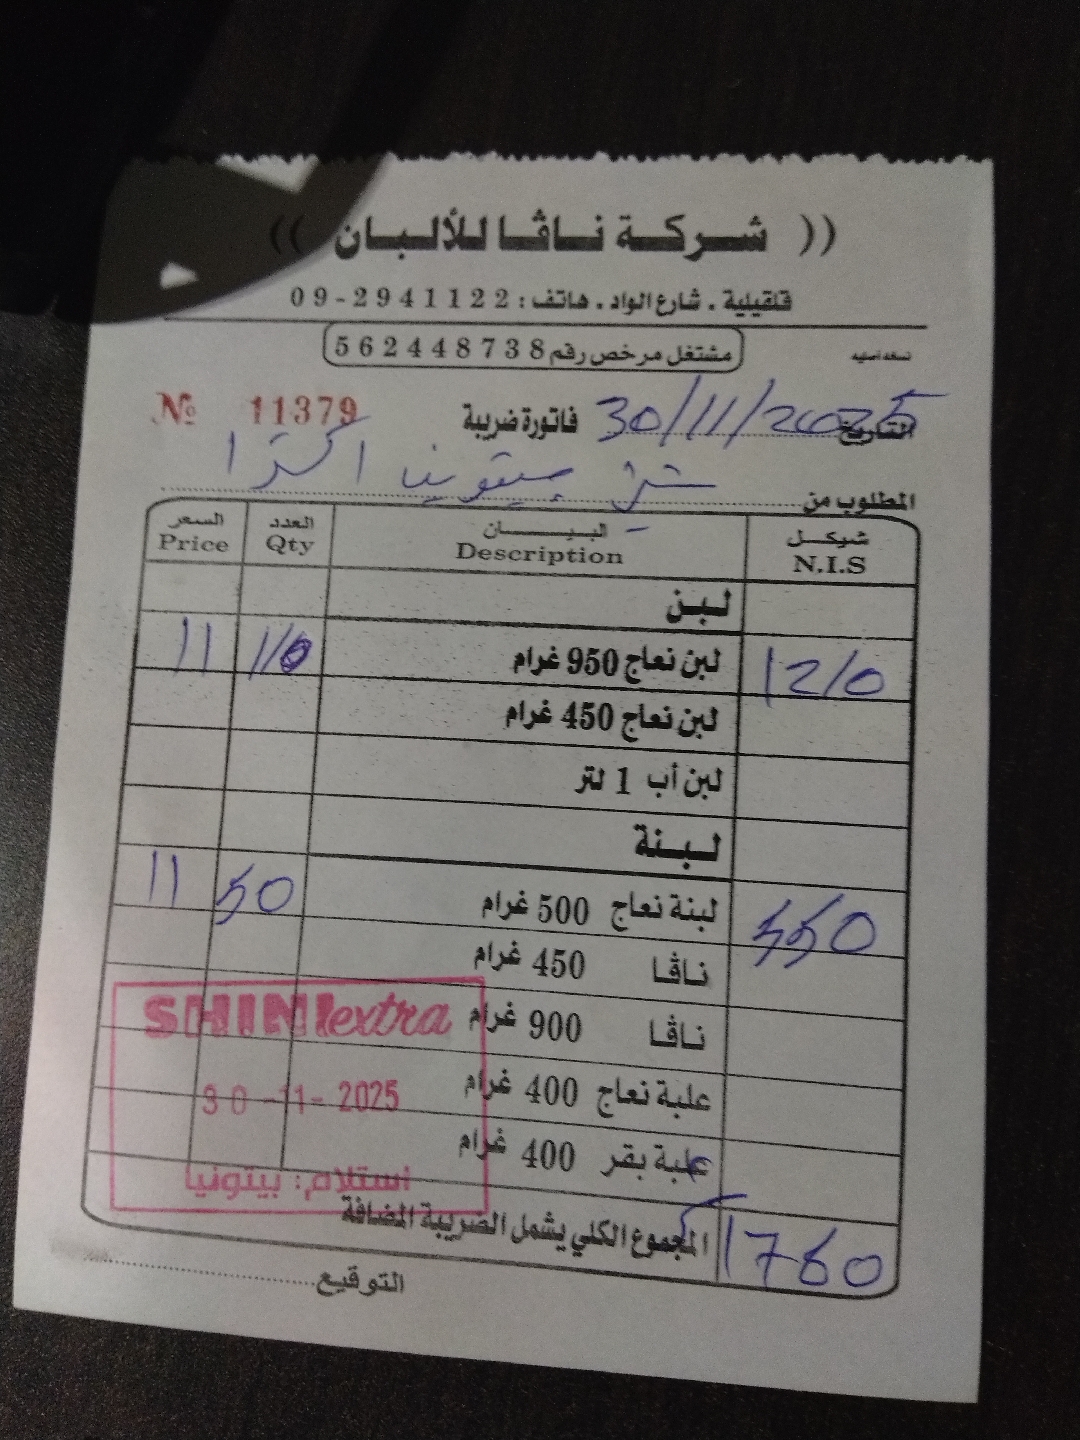 (( شركة ناڤا للألبان ))
قلقيلية . شارع الواد . هاتف : 2941122-09
مشتغل مرخص رقم 562448738
نسخة أصلية
№ 11379 فاتورة ضريبة التاريخ 30/11/2025
المطلوب من شني بيتونيا اكسترا
السعر العدد البيان شيكل
Price Qty Description N.I.S
لبن
11 110 لبن نعاج 950 غرام 1210
لبن نعاج 450 غرام
لبن أب 1 لتر
لبنة
11 50 لبنة نعاج 500 غرام 550
ناڤا 450 غرام
ناڤا 900 غرام
علبة نعاج 400 غرام
علبة بقر 400 غرام
المجموع الكلي يشمل الضريبة المضافة 1760
التوقيع
SHINI extra
30-11-2025
استلام: بيتونيا